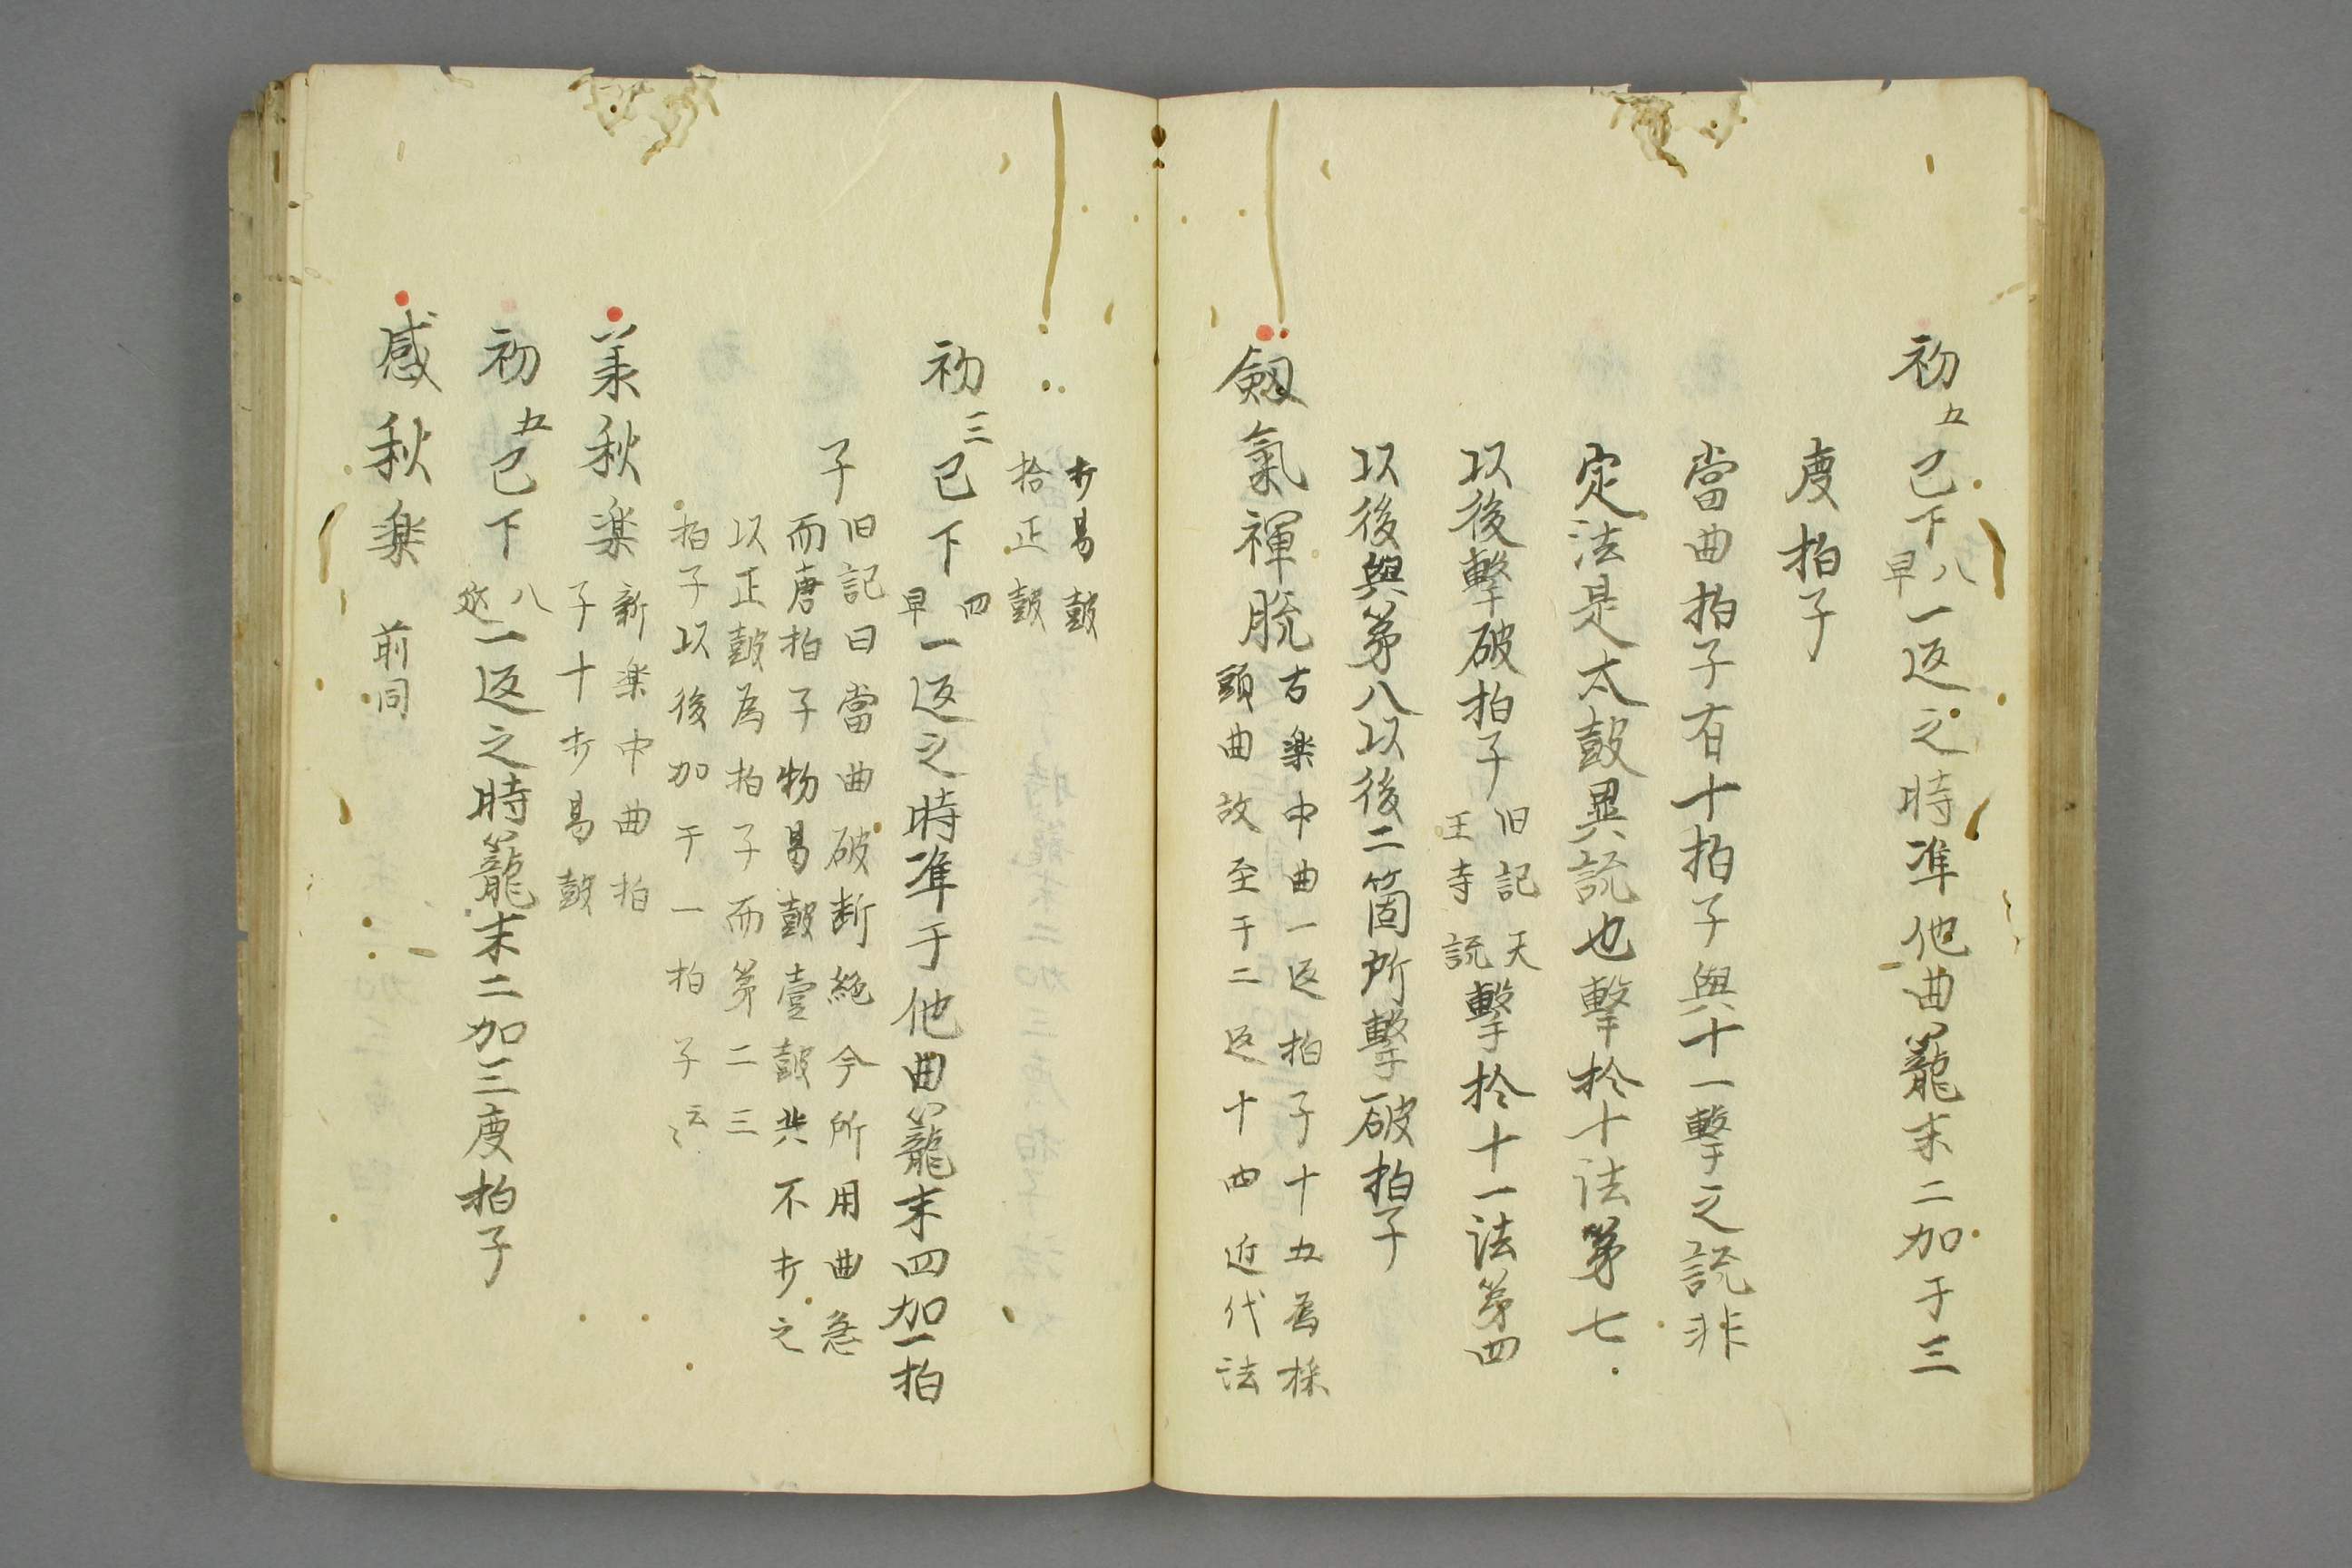 初五已下八早一返之時准他曲籠末二加于三
度拍子
當曲拍子有十拍子與十一擊之説非
定法是太鼓異説也擊於十法第七
以後擊破拍子旧記天王寺説擊於十一法第四
以後與第八以後二箇所擊破拍子
劔氣褌脱古楽中曲一返拍子十五為採
頭曲故至于二返十四近代法
打易鼓
拾正鼓
初三已下四早一返之時准于他曲籠末四加一拍
子旧記曰當曲破断絶今所用曲急
而唐拍子物易鼓壹鼓共不打之
以正鼓為拍子而第二三
拍子以後加于一拍子云〻
羙秋楽新楽中曲拍
子十打易鼓
初五已下八延一返之時籠末二加三度拍子
感秋楽 前同